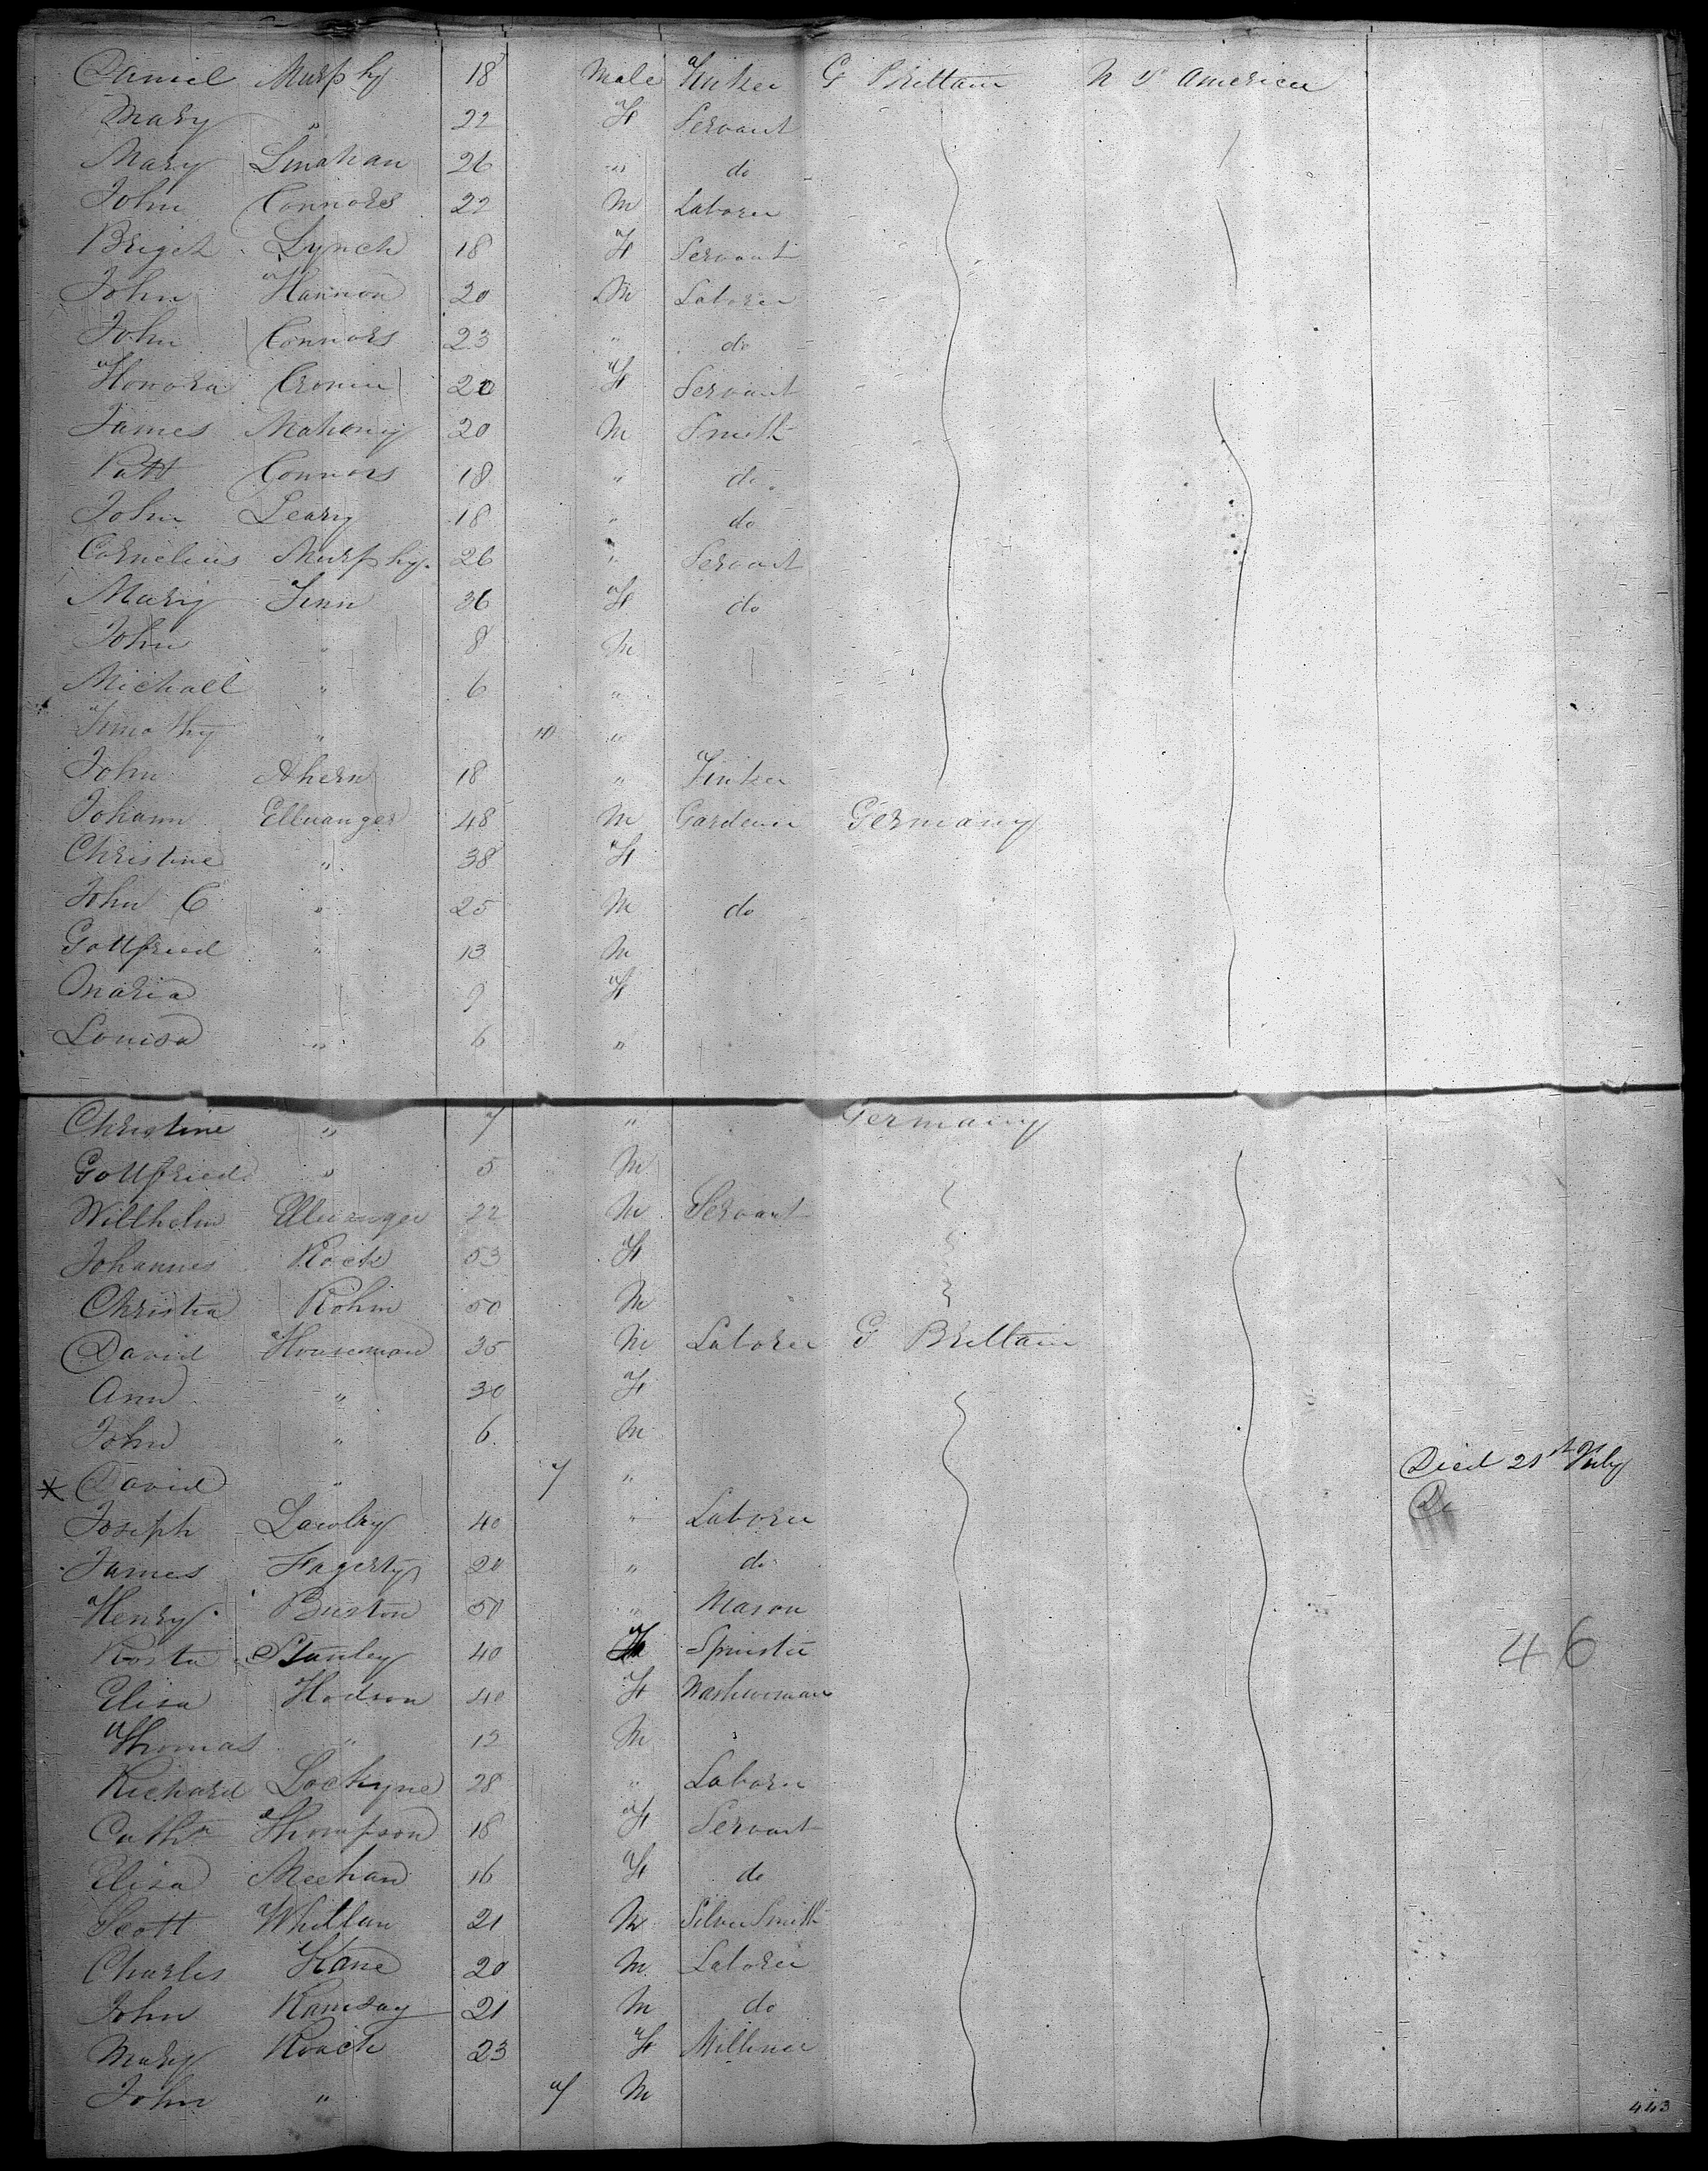 Daniel Murphy 18 Male Tinker G Brittain N S America
Mary " 22 F Servant
Mary Linahan 26 " do
John Connors 22 M Laborer
Briget Lynch 18 F Servant
John Hannon 20 M Laborer
John Connors 23 " do
Honora Cronin 20 F Servant
James Mahony 20 M Smith
Patt Connors 18 " do
John Leary 18 " do
Cornelius Murphy 26 " Servant
Mary Finn 36 F do
John " 8 M
Michall " 6 "
Timothy " 10 "
John Ahern 18 " Tinker
Johann Ellwanger 48 M Gardener Germany
Christine " 38 F
John C " 25 M do
Gottfried " 13 M
Maria " 9 F
Louisa " 6 "
Christine " 7 " Germany
Gottfried " 5 M
Willhelm Ellwanger 22 M Servant
Johannes Rock 53 F
Christia Rohm 50 M
David Houseman 35 M Laborer G Brittain
Ann " 30 F
John " 6 M
* David " 7 " Died 21st July
Joseph Lawlry 40 " Laborer
James Fagerty 20 " do
Henry Burton 50 " Mason
Stanley 40 F Spinster 46
Elisa Hodson 40 F Washwoman
Thomas " 12 M
Richard Lockyne 28 " Laborer
Cathn Thompson 18 F Servant
Elisa Meehan 16 F do
Scott Whillan 21 M Silver Smith
Charles Kane 20 M Laborer
John Ramsay 21 M do
Mary Roach 23 F Milliner
John " 7 M
443